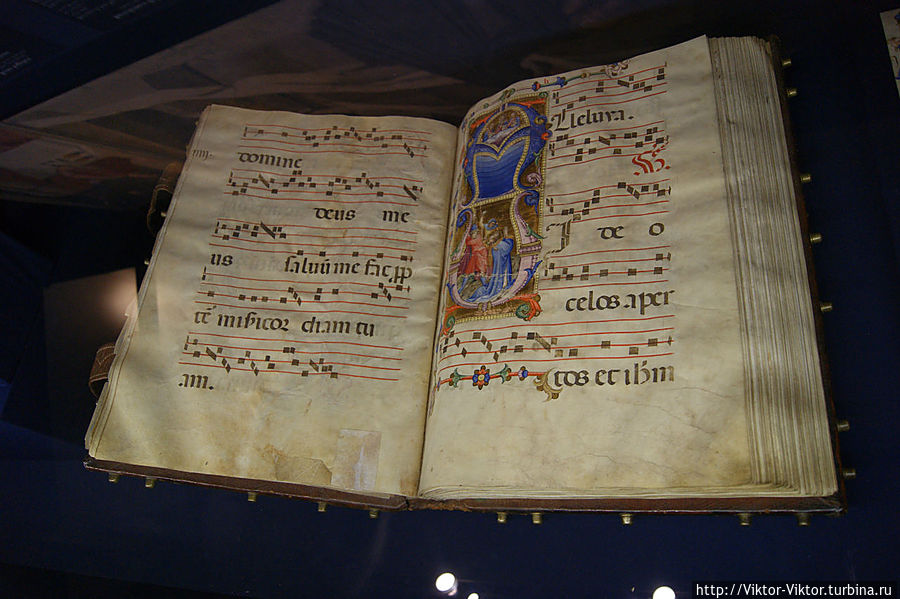 domine
deus me
us salvū me fac pp
tē misicor diam tu
am.
Alleluya.
V
I de o
celos aper
tos et ihm
http://Viktor-Viktor.turbina.ru